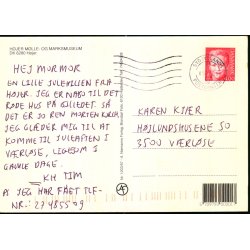 HØJER MØLLE- OG MARSKMUSEUM
DK 6280 Højer
HEJ MORMOR
EN LILLE JULEHILSEN FRA
HØJER. JEG ER NABO TIL DET
RØDE HUS PÅ BILLEDET. SÅ
DET ER JO REN MORTEN KORCH
JEG GLÆDER MIG TIL AT
KOMME TIL JULEAFTEN I
VÆRLØSE, LIGESOM I
GAMLE DAGE.
KH TIM
PS JEG HAR FÅET TLF-
NR: 27485509
KAREN KJÆR
HØJLUNDSHUSENE 50
3500 VÆRLØSE